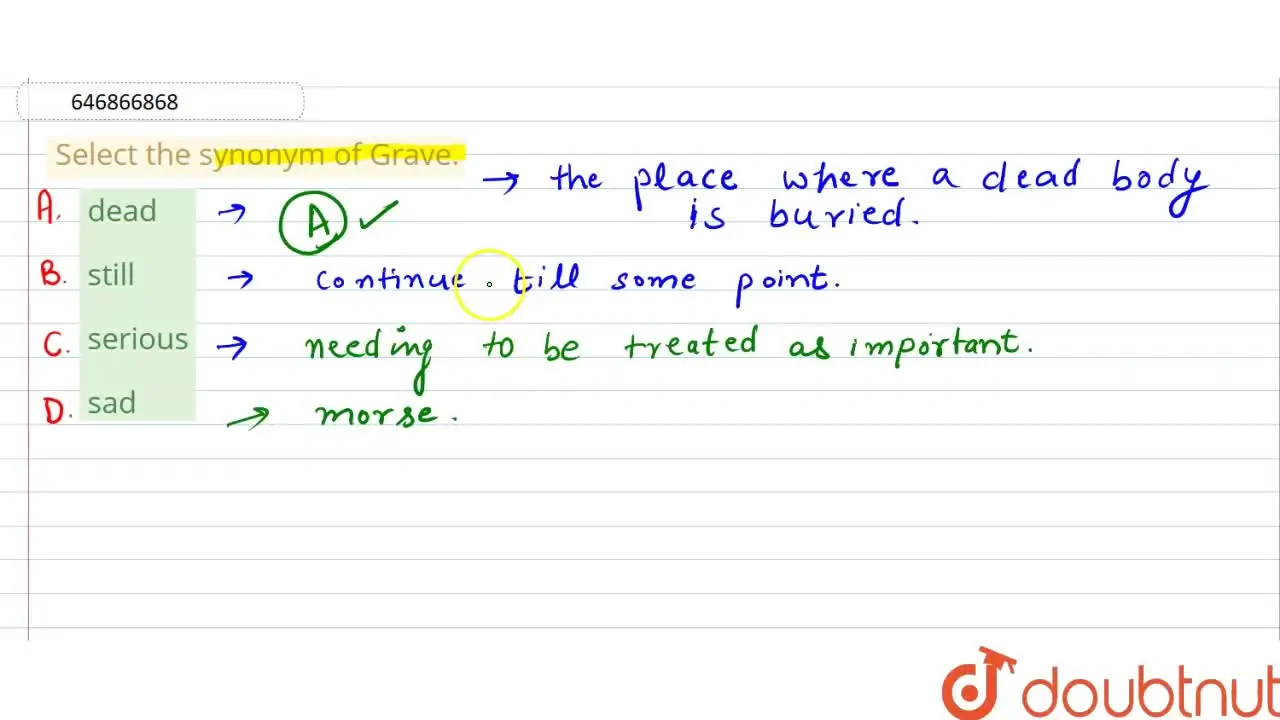 646866868
Select the synonym of Grave.
→ the place where a dead body
is buried.
A. dead → A ✓
B. still → continue till some point.
C. serious → needing to be treated as important.
D. sad → morse.
doubtnut